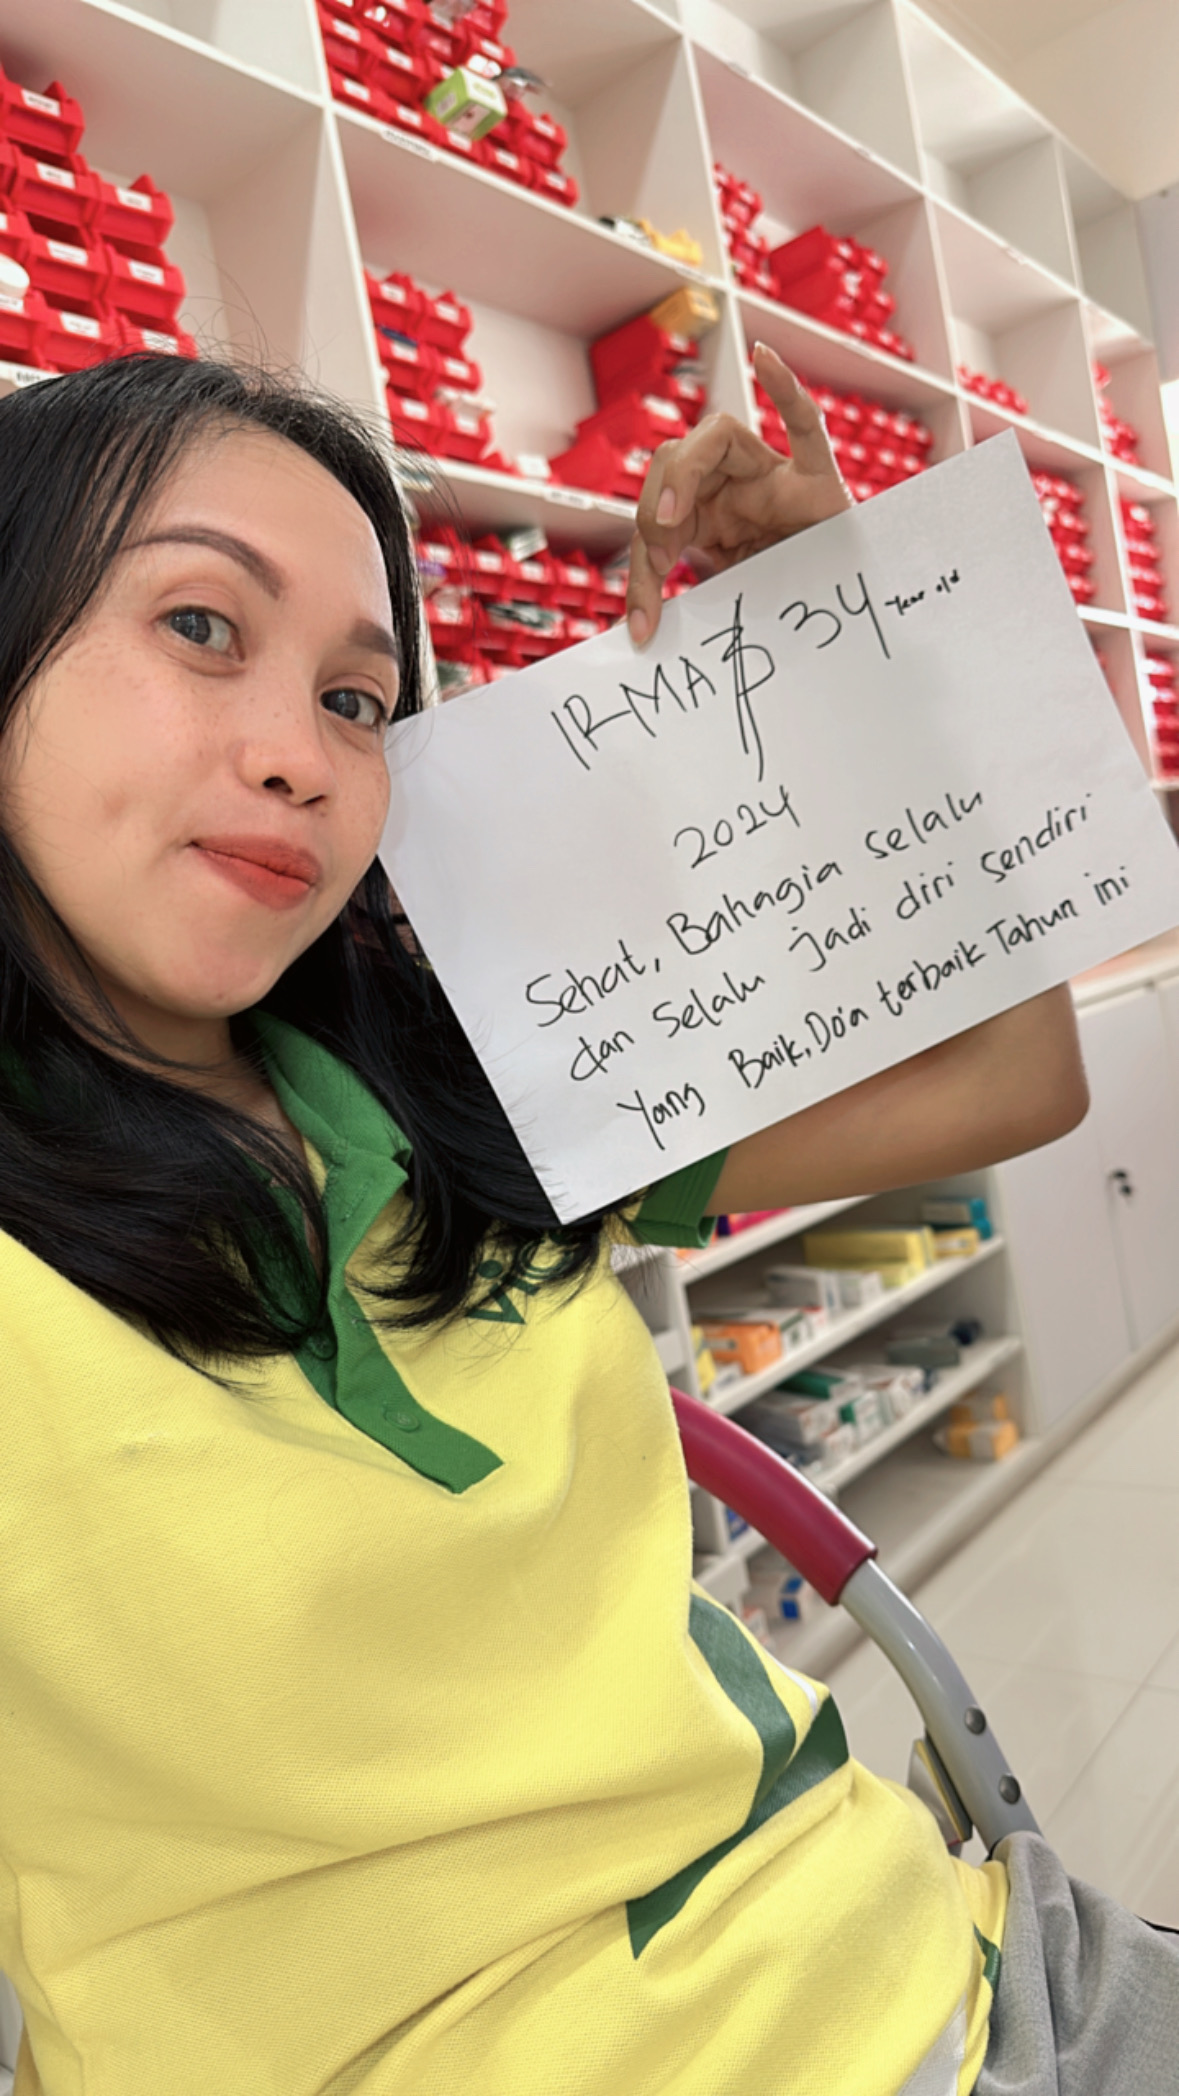 IRMA 34 Year old
2024
Sehat, Bahagia selalu
dan selalu jadi diri sendiri
Yang Baik, Do'a terbaik Tahun ini